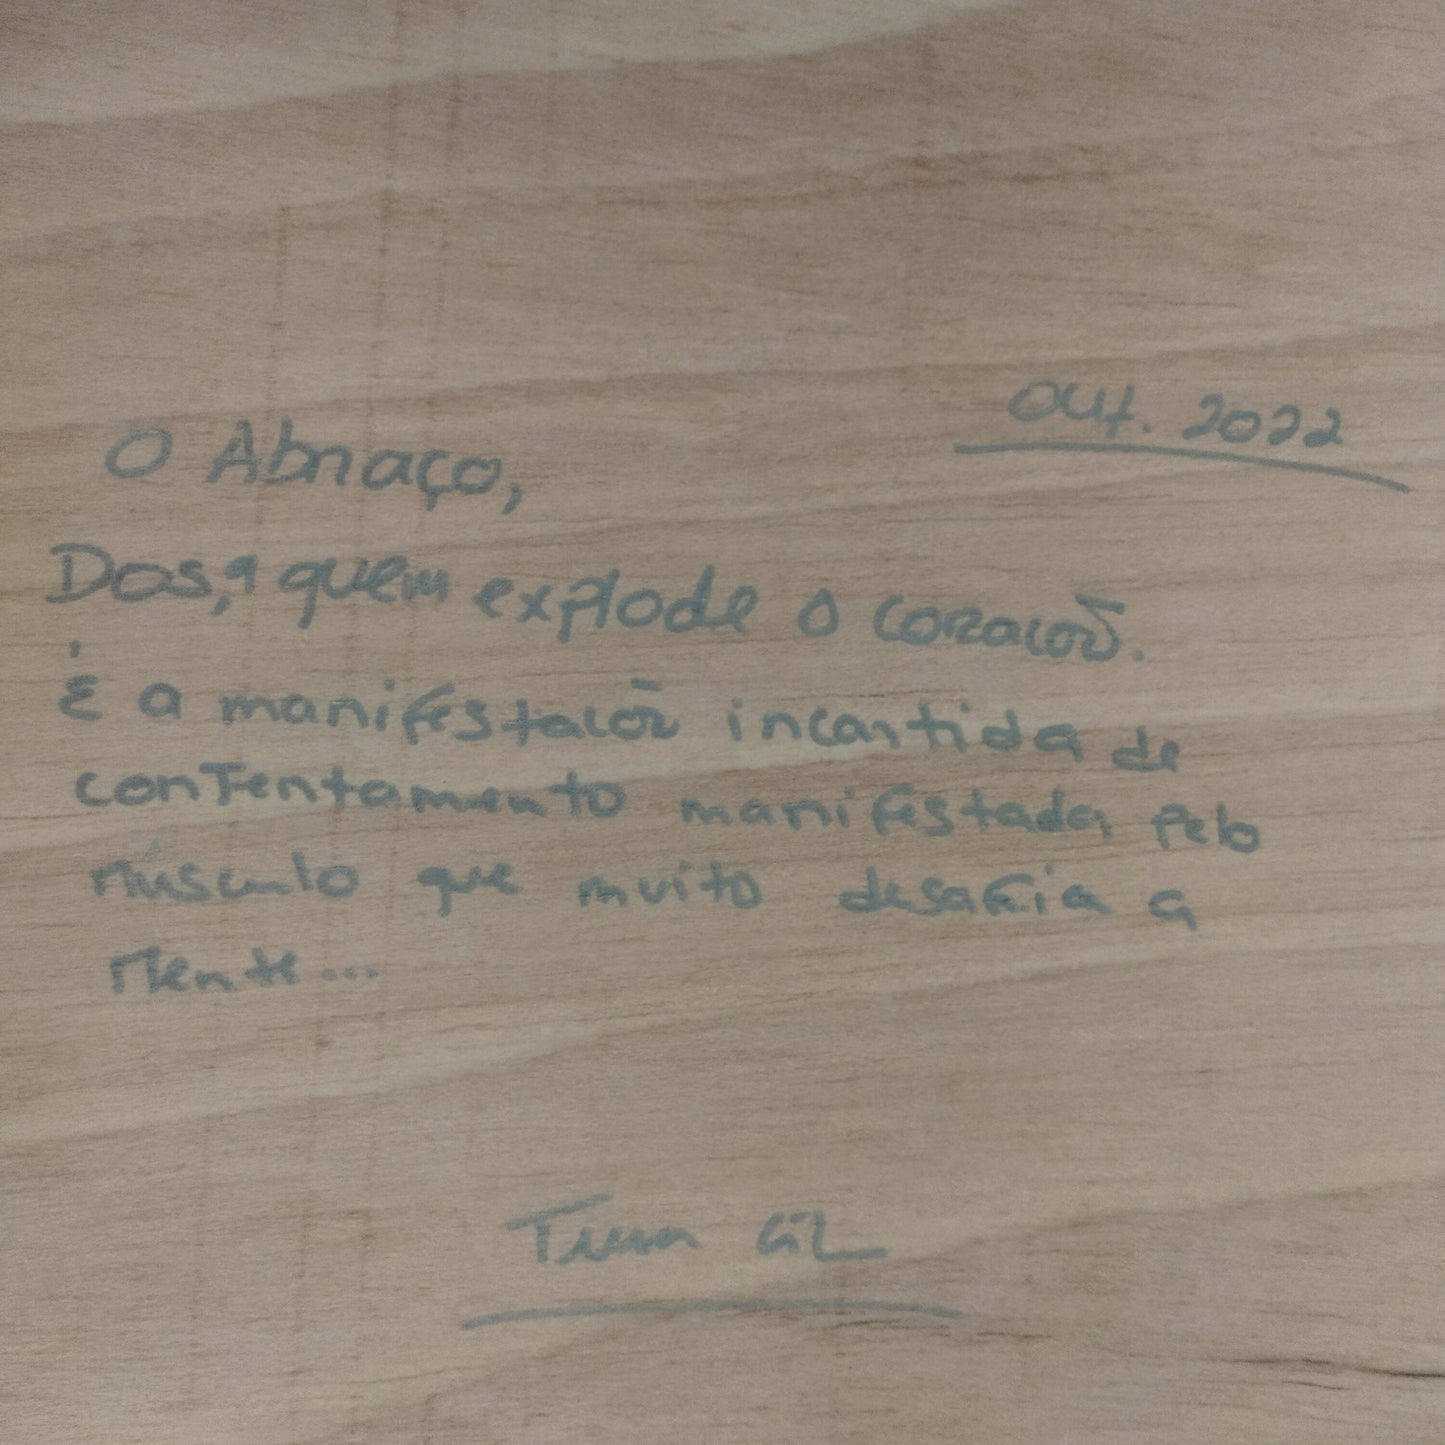 Out. 2022
O Abraço,
Das, a quem explode o coracoõ.
É a manifestacoõ incontida de
contentamento manifestada pelo
músculo que muito desafia a
Mente...
GIL